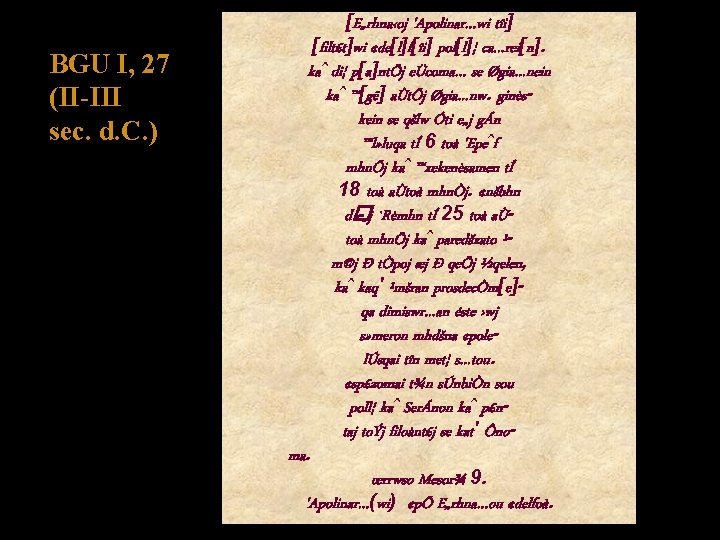 BGU I, 27
(II-III
sec. d.C.)
[E„rhna‹oj 'Apolinar…wi tîi]
[filt£t]wi ¢de[l]f[îi] pol[l]¦ ca…rei[n].
kaˆ di¦ p[a]ntÕj eÜcoma… se Øgia…nein
kaˆ ™[gë] aÙtÕj Øgia…nw. ginès-
kein se qšlw Óti e„j gÁn
™l»luqa tÍ 6 toà 'Epeˆf
mhnÕj kaˆ ™xekenèsamen tÍ
18 toà aÙtoà mhnÒj. ¢nšbhn
d□j `Rèmhn tÍ 25 toà aÙ-
toà mhnÕj kaˆ paredšxato ¹-
m©j Ð tÒpoj æj Ð qeÕj ½qelen,
kaˆ kaq' ¹mšran prosdecÒm[e]-
qa dimiswr…an éste ›wj
s»meron mhdšna ¢pole-
lÚsqai tîn met¦ s…tou.
¢sp£zomai t¾n sÚnbiÒn sou
poll¦ kaˆ SerÁnon kaˆ p£n-
taj toÝj filoànt£j se kat' Ôno-
ma.
œrrwso Mesor¾ 9.
'Apolinar…(wi) ¢pÕ E„rhna…ou ¢delfoà.